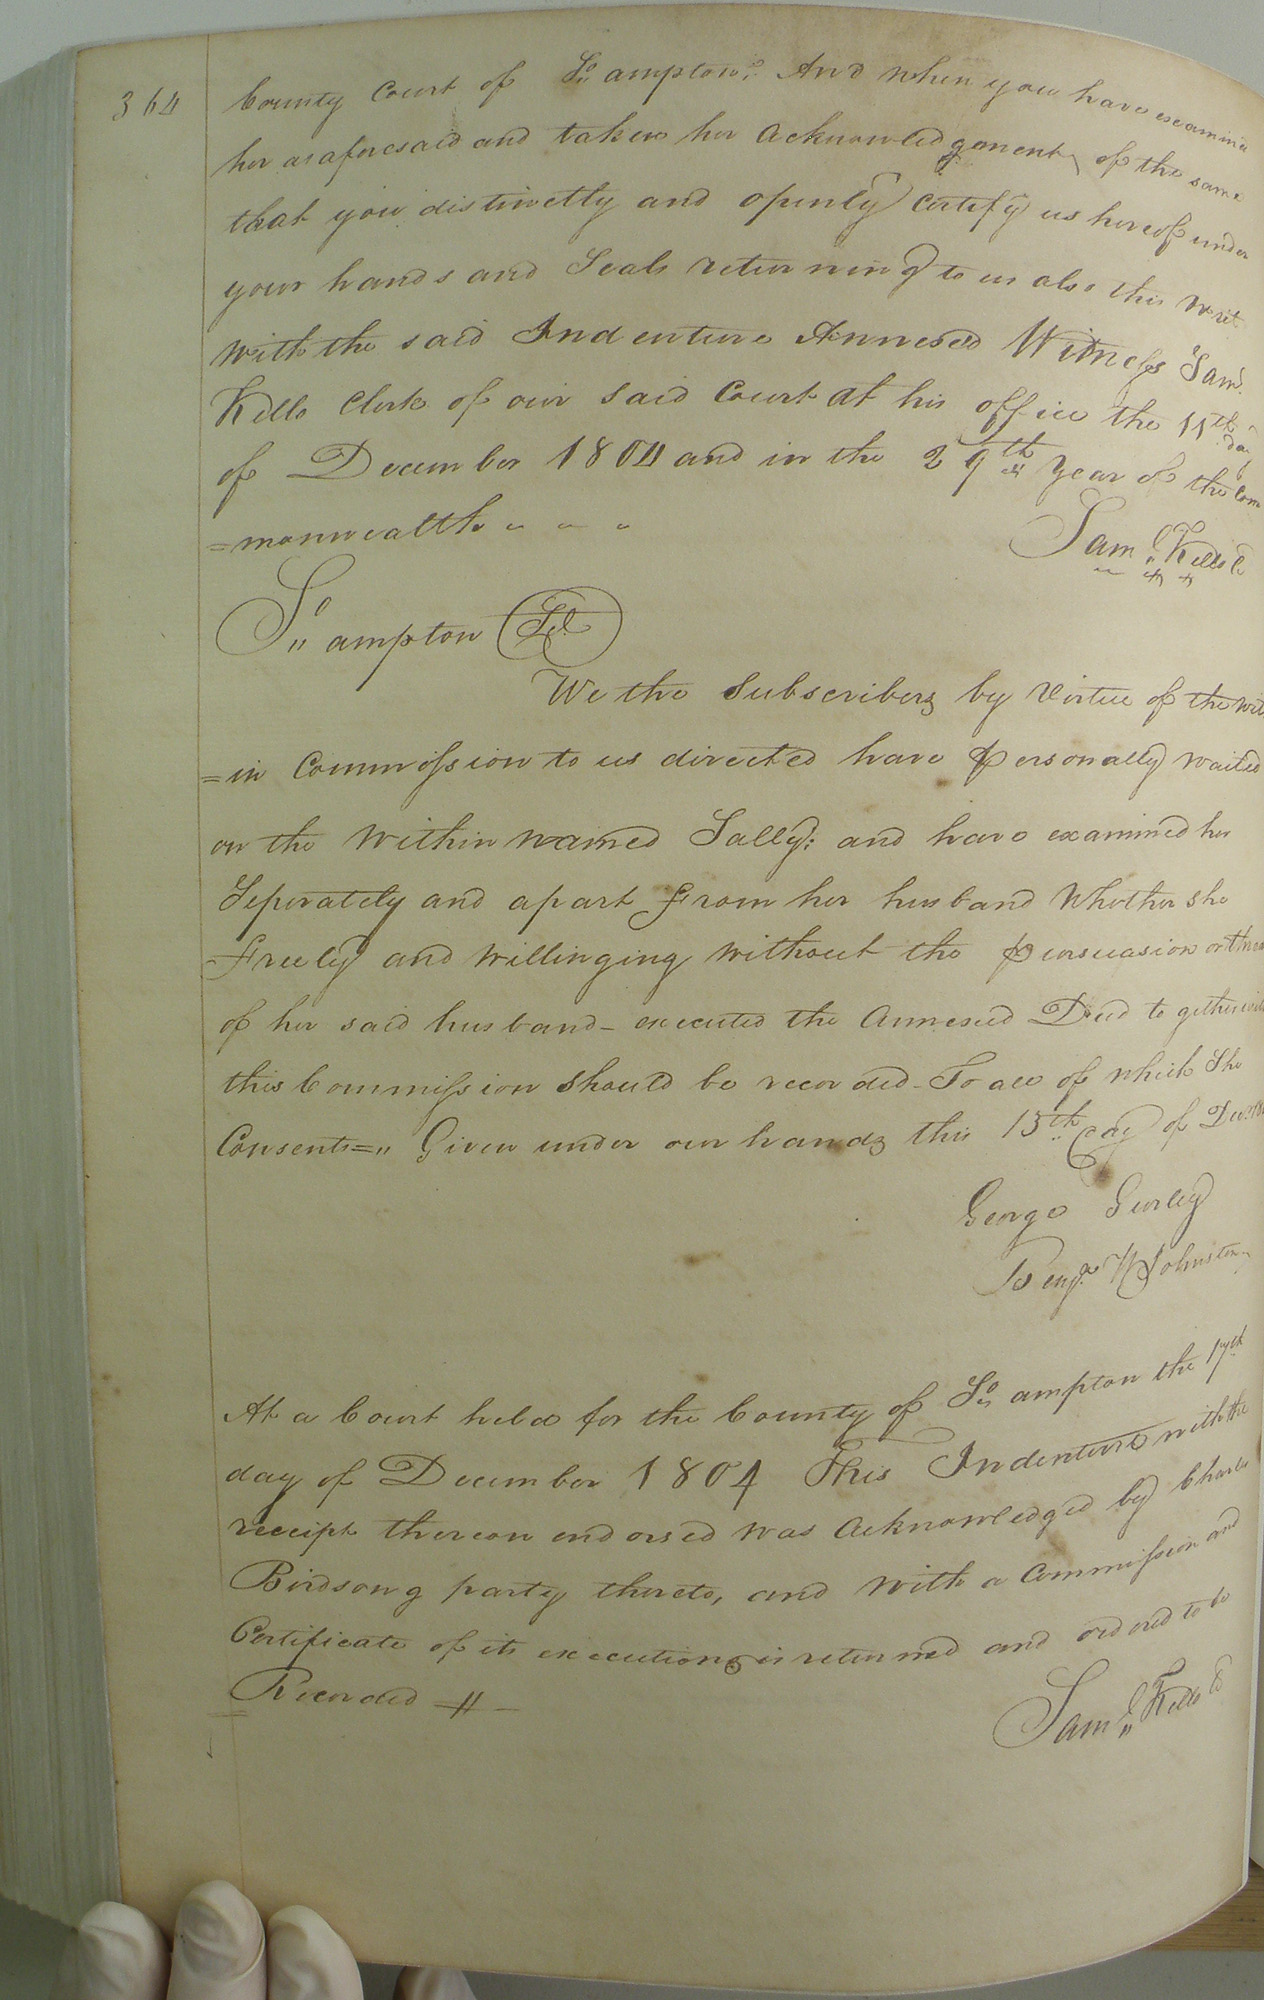 364
County Court of So ampton. And when you have examined
her as aforesaid and taken her Acknowledgement of the same
that you distinctly and openly Certify us hereof under
your hands and Seals returning to us also this Writ
with the said Indenture Annexed Witness Saml.
Kello Clerk of our said Court at his office the 11th day
of December 1804 and in the 29th year of the Com
=monwealth
Saml. Kello C
So ampton
We the Subscribers by Virtue of the with
=in Commission to us directed have personally waited
on the Within named Sally; and have examined her
Seperately and apart from her husband Whether she
freely and Willinging without the persuasion or threa
of her said husband - executed the Annexed Deed to gether with
this Commission should be recorded - To all of which She
Consents = Given under our hands this 15th Day of Decr. 18
George Gurley
Benja. W Johnston
At a Court held for the County of So ampton the 17th
day of December 1804 This Indenture with the
receipt thereon endorsed was Acknowledged by Charles
Birdsong party thereto, and with a Commission and
Certificate of its execution is returned and ordered to be
Recorded
Saml. Kello